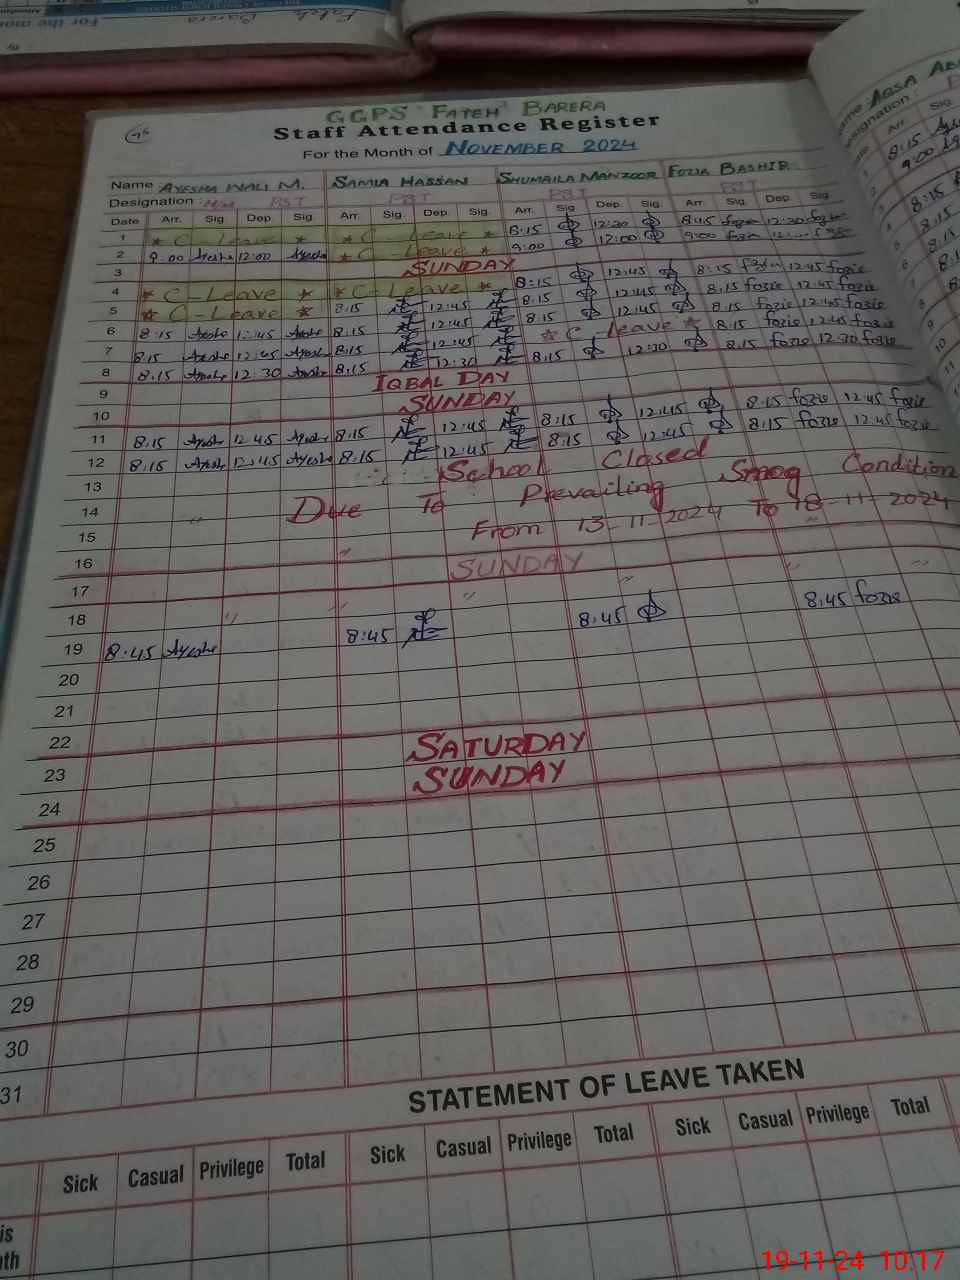 For the mon
Fateh Barera
GGPS FATEH BARERA
Staff Attendance Register
For the Month of NOVEMBER 2024
Name AYESHA WALI M. SAMIA HASSAN SHUMAILA MANZOOR FOZIA BASHIR
Designation : PST PST PST PST
Date Arr. Sig. Dep. Sig. Arr. Sig. Dep. Sig. Arr. Sig. Dep. Sig. Arr. Sig. Dep. Sig.
1 * C - Leave * * C - Leave * 8:15 12:30 8:15 fozia 12:30 fozia
2 9:00 Ayesha 12:00 Ayesha * C - Leave * 9:00 12:00 9:00 fozia
3 SUNDAY
4 * C - Leave * * C - Leave * 8:15 12:45 8:15 fozia 12:45 fozie
5 * C - Leave * 8:15 12:45 8:15 12:45 8:15 fozie 12:45 fozie
6 8:15 Ayeshe 12:45 Ayeshe 8:15 12:45 8:15 12:45 8:15 fozie 12:45 fozie
7 8:15 Ayeshe 12:45 Ayeshe 8:15 12:45 * C - Leave * 8:15 fozie 12:45 fozie
8 8:15 Ayeshe 12:30 Ayeshe 8:15 12:30 8:15 12:30 8:15 fozie 12:30 fozie
9 IQBAL DAY
10 SUNDAY
11 8:15 Ayeshe 12:45 Ayeshe 8:15 12:45 8:15 12:45 8:15 fozie 12:45 fozie
12 8:15 Ayeshe 12:45 Ayeshe 8:15 12:45 8:15 12:45 8:15 fozie 12:45 fozie
13 School Closed
14 Due To Prevailing Smog Condition
15 " From 13-11-2024 To 18-11-2024
16 "
17 SUNDAY
18 " " " "
19 8:45 Ayeshe 8:45 8:45 8:45 fozie
20
21
22
23 SATURDAY
24 SUNDAY
25
26
27
28
29
30
31
STATEMENT OF LEAVE TAKEN
Sick Casual Privilege Total Sick Casual Privilege Total Sick Casual Privilege Total
19-11-24 10:17